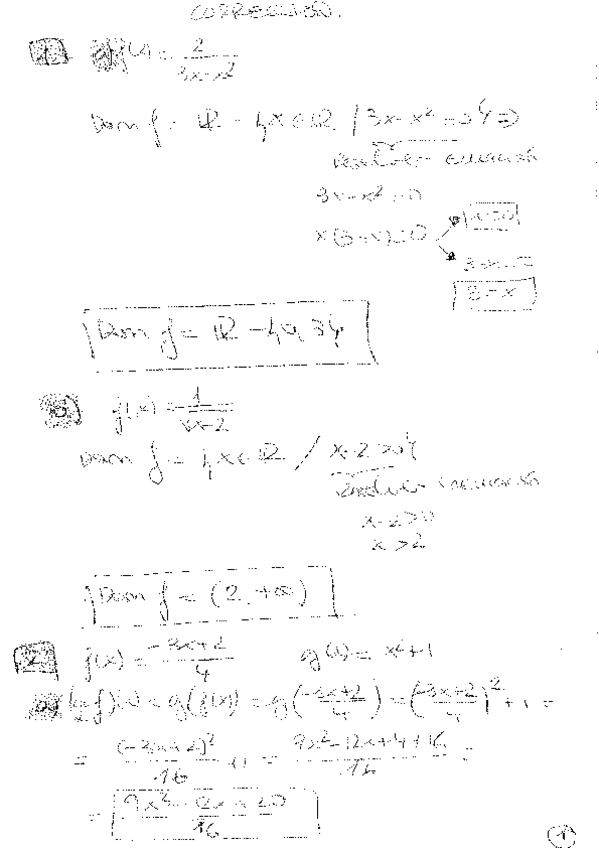 CORRECCIÓN.
1 a) f(x) = 2/(3x-x²)
Dom f = ℝ - {x∈ℝ / 3x-x² = 0} ⇒
resolver ecuación
3x-x² = 0
x(3-x) = 0
x=0
3-x =
3 = x
Dom f = ℝ - {0, 3}
b) f(x) = 1/√(x-2)
Dom f = {x∈ℝ / x-2 > 0}
resolver inecuación
x-2>0
x>2
Dom f = (2, +∞)
2 f(x) = (-3x+2)/4 g(x) = x²+1
a) (g∘f)(x) = g(f(x)) = g((-3x+2)/4) = ((-3x+2)/4)² + 1 =
= (-3x+2)²/16 + 1 = (9x²-12x+4+16)/16 =
= (9x²-12x+20)/16
1